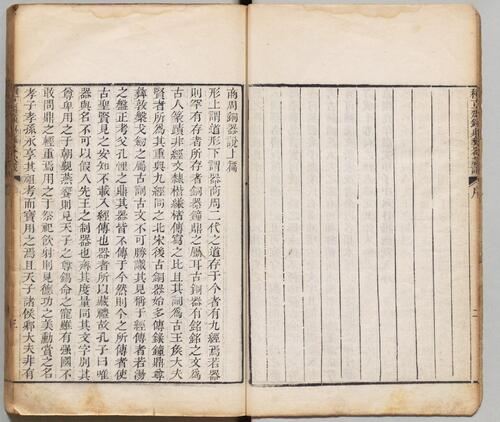 積古齋鐘鼎彝器款識 序
二
商周銅器說上篇
形上謂道形下謂器商周二代之道存于今者有九經焉若器
則罕有存者所存者銅器鐘鼎之屬耳古銅器有銘銘之文爲
古人篆蹟非經文隸楷縑楮傳寫之比且其詞爲古王矦大夫
賢者所爲其重與九經同之北宋後古銅器始多傳錄鐘鼎尊
彝敦槃戈劍之屬古詞古文不可勝識其見稱于經傳者若湯
之盤正考父孔悝之鼎其器皆不傳于今然則今之所傳者使
古聖賢見之安知不載入經傳也器者所以藏禮故孔子曰唯
器與名不可以假人先王之制器也齊其度量同其文字別其
尊卑用之于朝覲燕饗則見天子之尊錫命之寵雖有强國不
敢問鼎之輕重焉用之于祭祀飲射則見德功之美勳賞之名
孝子孝孫永享其祖考而寶用之焉且天子諸侯卿大夫非有